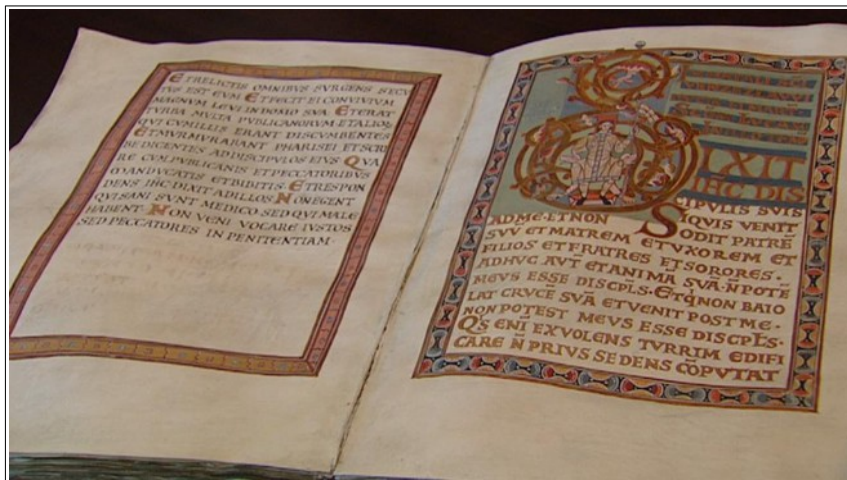 ET RELICTIS OMNIBUS SURGENS SECU
TUS EST EUM ET FECIT EI CONVIVIUM
MAGNUM LEVI IN DOMO SUA ET ERAT
TURBA MULTA PUBLICANORUM ET ALIOR
QUI CUM ILLIS ERANT DISCUMBENTES
ET MURMURABANT PHARISEI ET SCRI
BE DICENTES AD DISCIPULOS EIUS QUA
RE CUM PUBLICANIS ET PECCATORIBUS
MANDUCATIS ET BIBITIS ET RESPON
DENS IHC DIXIT AD ILLOS NON EGENT
QUI SANI SUNT MEDICO SED QUI MALE
HABENT NON VENI VOCARE IUSTOS
SED PECCATORES IN PENITENTIAM
DIXIT
IHC DIS
CIPULIS SUIS
SIQUIS VENIT
AD ME ET NON ODIT PATRĒ
SUŪ ET MATREM ET UXOREM ET
FILIOS ET FRATRES ET SORORES.
ADHUC AUT̄ ET ANIMĀ SUĀ N̄ POTE
MEUS ESSE DISCPLS. ET Q̄ NON BAIO
LAT CRUCĒ SUĀ ET VENIT POST ME.
NON POTEST MEUS ESSE DISCPLS.
QS ENĪ EX VOLENS TURRIM EDIFI
CARE N̄ PRIUS SEDENS CŌPUTAT